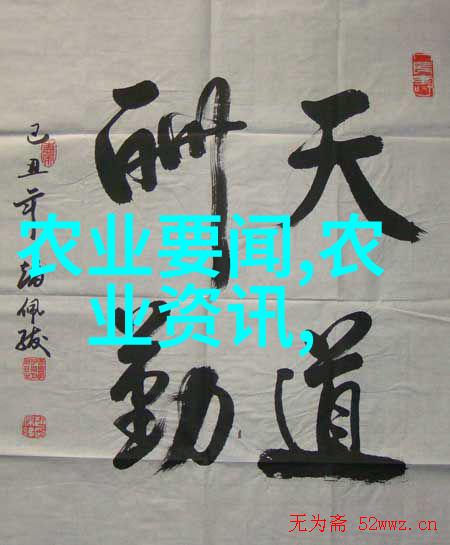 天道
酬勤
己丑年
农业要闻,农
业资讯,
无为斋 52wwz.cn